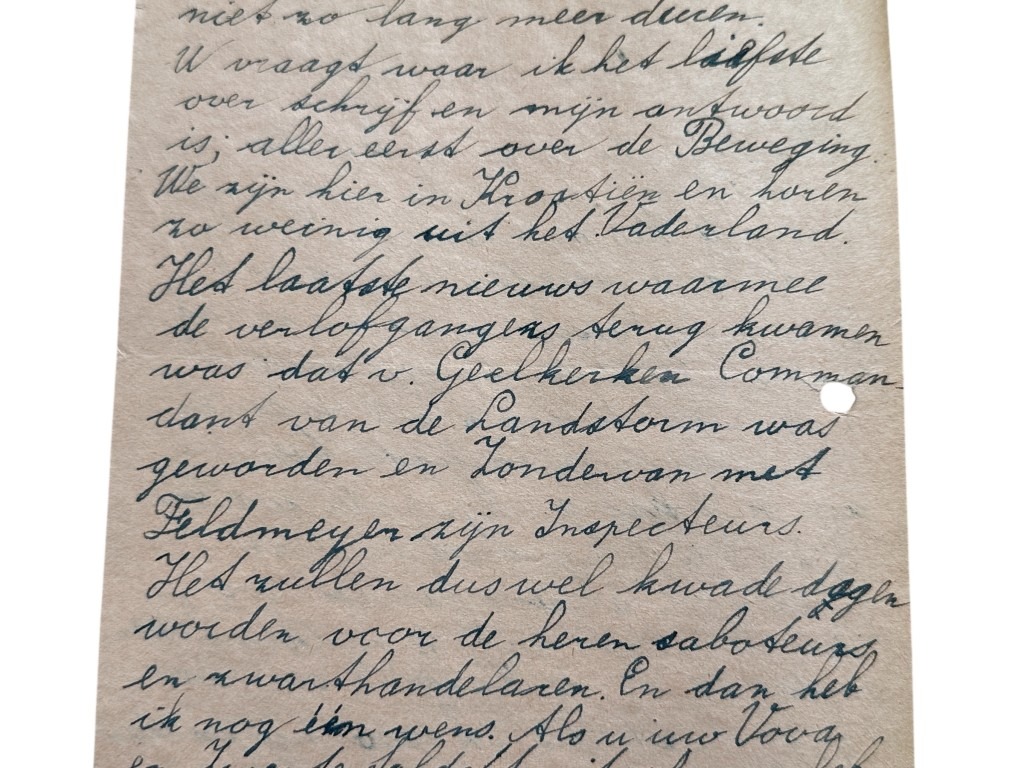 niet zo lang meer duren.
U vraagt waar ik het liefste
over schrijf en mijn antwoord
is; aller eerst over de Beweging.
We zijn hier in Kroatiën en horen
zo weinig uit het Vaderland.
Het laatste nieuws waarmee
de verlofgangers terug kwamen
was dat v. Geelkerken Comman-
dant van de Landstorm was
geworden en Zondervan met
Feldmeyer zijn Inspecteurs.
Het zullen dus wel kwade dagen
worden voor de heren saboteurs
en zwarthandelaren. En dan heb
ik nog één wens. Als u uw Vova
en